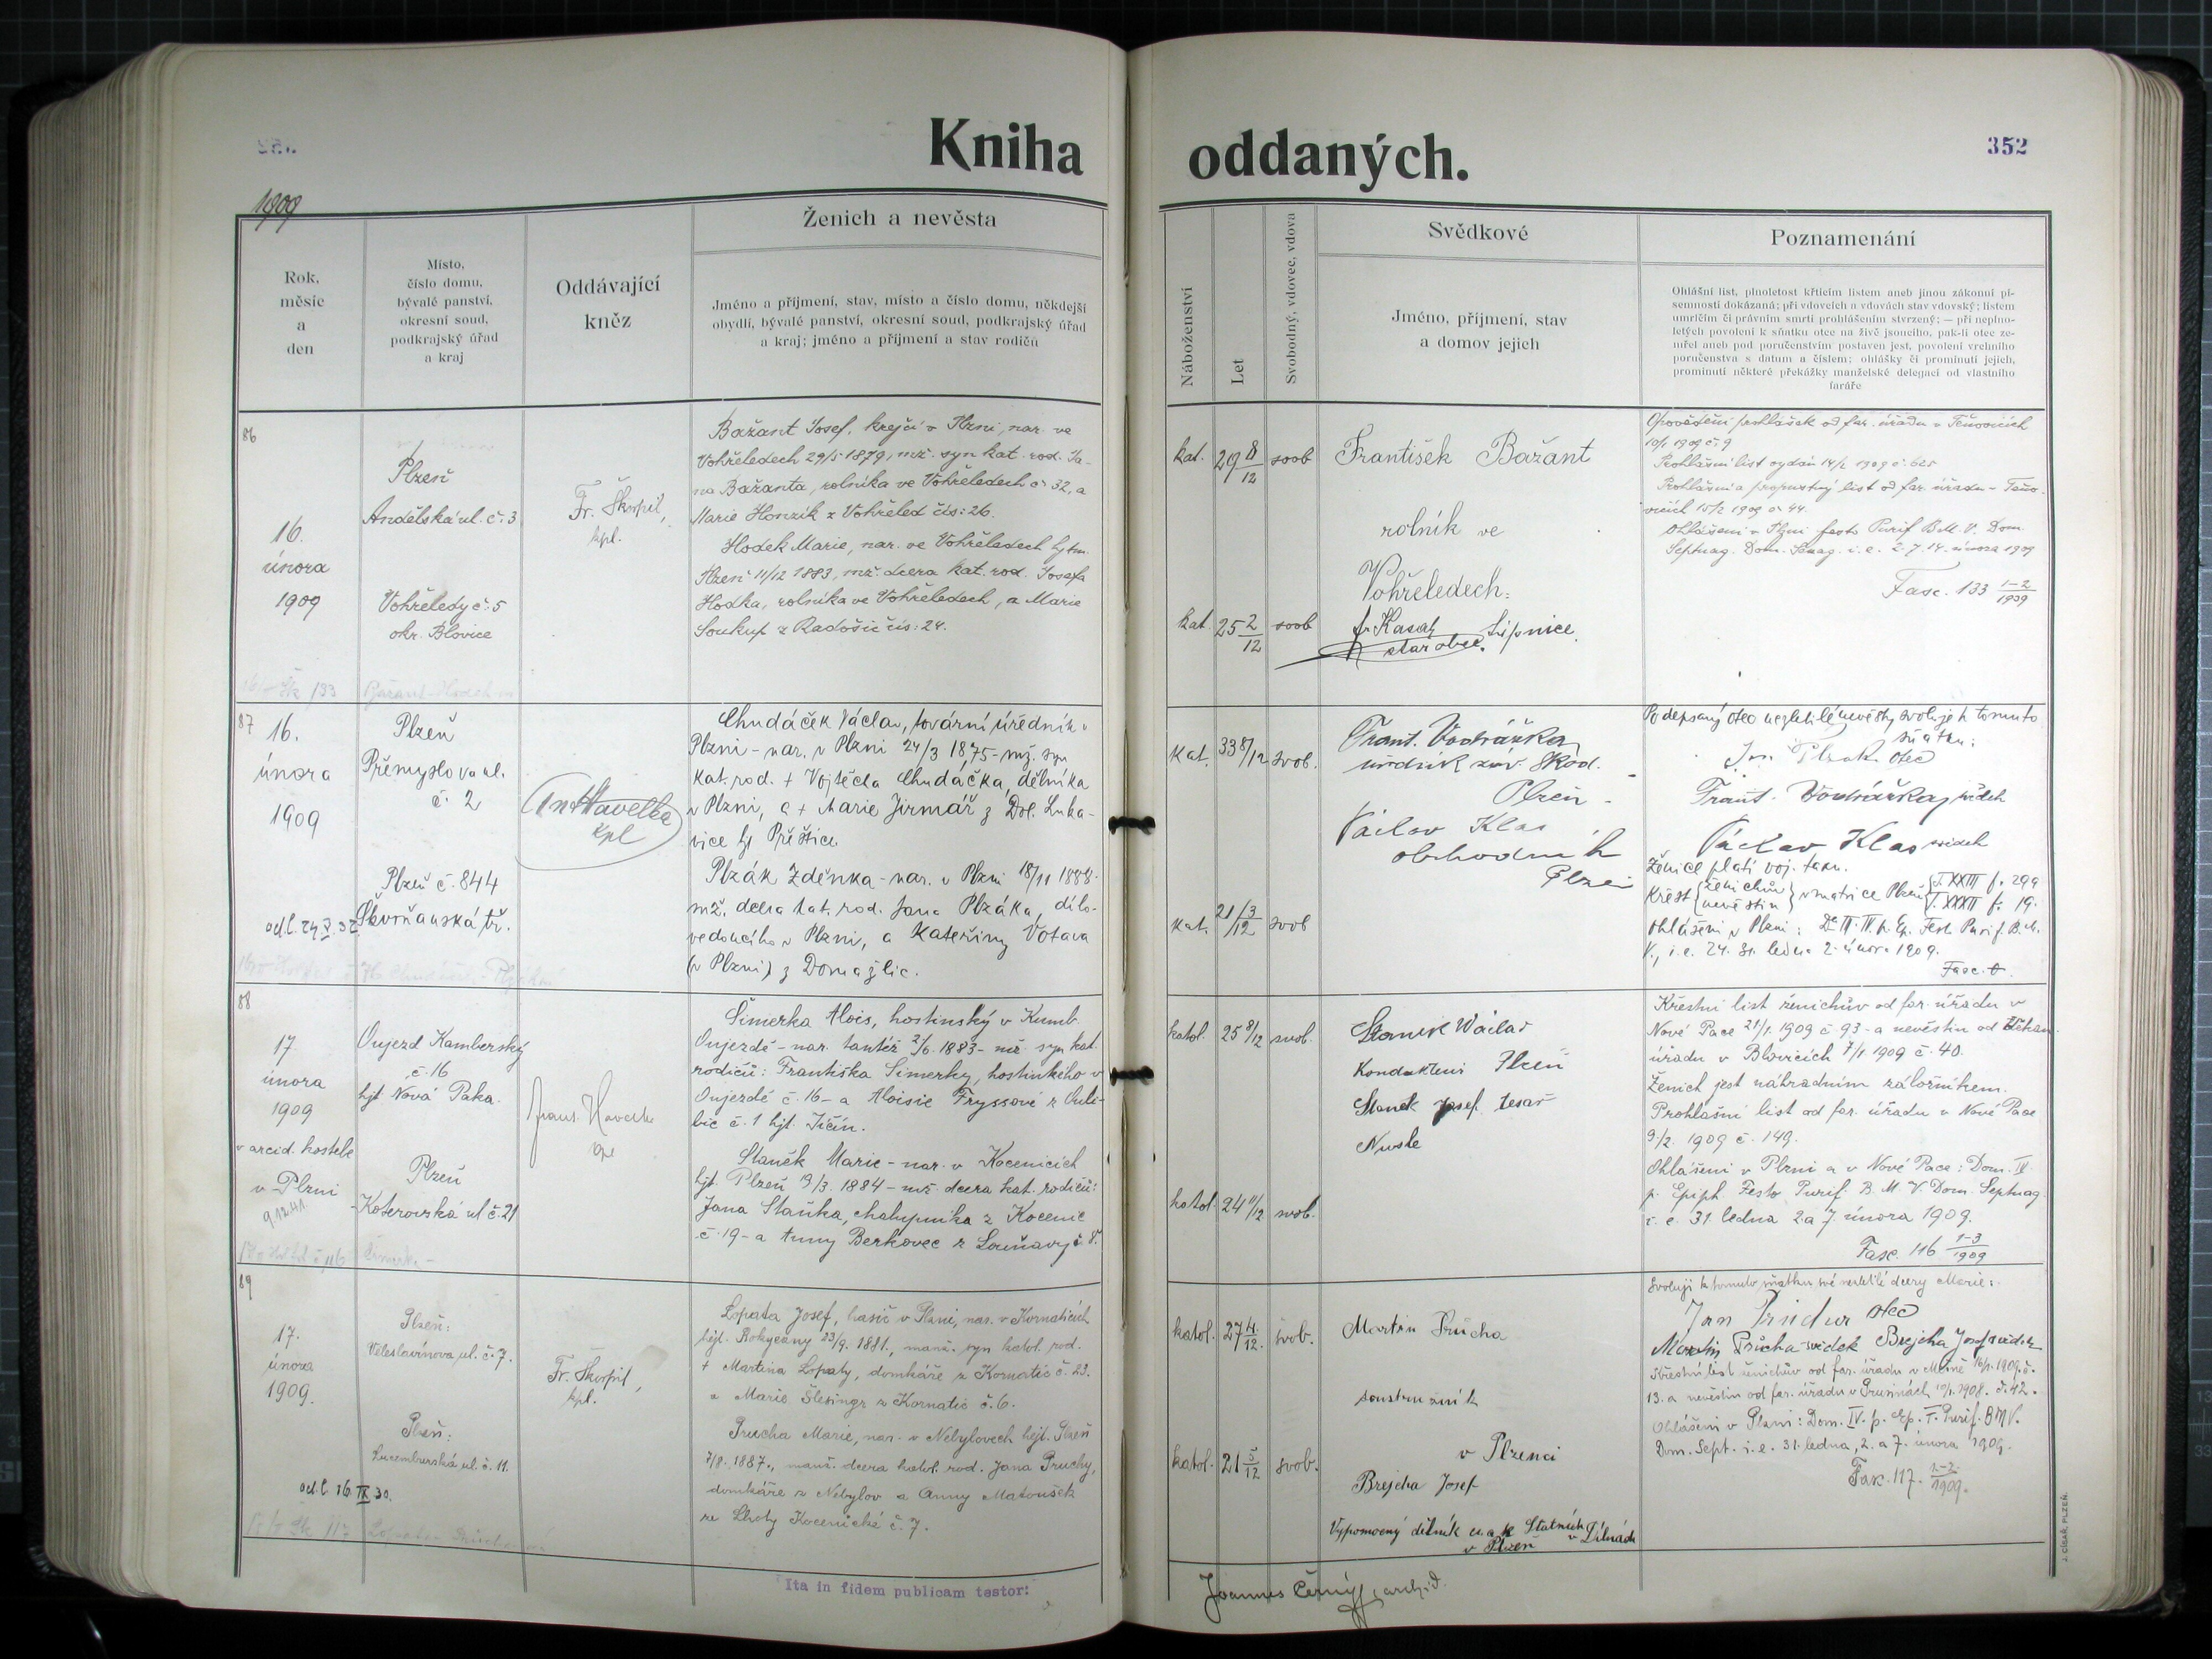 Kniha oddaných.
352
1909
Rok, měsíc a den
Místo, číslo domu, bývalé panství, okresní soud, podkrajský úřad a kraj
Oddávající kněz
Ženich a nevěsta
Jméno a příjmení, stav, místo a číslo domu, někdejší
obydlí, bývalé panství, okresní soud, podkrajský úřad
a kraj; jméno a příjmení a stav rodičů
Náboženství
Let
Svobodný, vdovec, vdova
Svědkové
Jméno, příjmení, stav
a domov jejich
Poznamenání
Ohlášní list, plnoletost křticím listem aneb jinou zákonní pí-
semností dokázaná; při vdovcích a vdovách stav vdovský; listem
umrlčím či právním smrti prohlášením stvrzený; — při neplno-
letých povolení k sňatku otce na živě jsoucího, pak-li otec ze-
mřel aneb pod poručenstvím postaven jest, povolení vrchního
poručenstva s datum a číslem; ohlášky či prominutí jejich,
prominutí některé překážky manželské delegací od vlastního
faráře
86
16.
února
1909
Plzeň
Andělská ul. č. 3
Vohřeledy č. 5
okr. Blovice
Fr. Škorpil,
kpl.
Bažant Josef, krejčí v Plzni, nar. ve
Vohřeledech 29/5 1879, mž. syn kat. rod. Ja-
na Bažanta, rolníka ve Vohřeledech č. 32, a
Marie Honzík z Vohřeled čís: 26.
Hodek Marie, nar. ve Vohřeledech hjtm.
Plzeň 11/12 1883, mž. dcera kat. rod. Josefa
Hodka, rolníka ve Vohřeledech, a Marie
Soukup z Radošic čís: 24.
kat. 29 8/12 svob
kat. 25 2/12 svob
František Bažant
rolník ve
Vohřeledech:
starobec. Lipnice.
Opovědění prohlášek od far. úřadu v
10/1 1909 č. 9
Prohlášní list vydán 14/2 1909 č. 625
Prohlášní a propustný list od far. úřadu
15/2 1909 č. 44.
Ohlášeni v Plzni festo Purif B.M.V. Dom.
Septuag. Dom. Sexag. i. e. 2. 7. 14. února 1909
Fasc. 133 1-2/1909
87
16.
února
1909
Plzeň
Přemyslova ul.
č. 2
Plzeň č. 844
Skvrňanská tř.
Ant Havelka
kpl
Chudáček Václav, tovární úředník v
Plzni - nar. v Plzni 24/3 1875 - mž. syn
kat. rod. + Vojtěcha Chudáčka, dělníka
v Plzni, a + Marie Jirmář z Dol. Luka-
vice hjt Přeštice.
Plzák Zděnka - nar. v Plzni 18/11 1888
mž. dcera kat. rod. Jana Plzáka, dílo-
vedoucího v Plzni, a Kateřiny Votava
(v Plzni) z Domažlic.
Kat. 33 8/12 svob.
Kat. 21/3/12 svob
Frant. Vodrážka,
úředník záv. Škod.
Plzeň -
Václav Klas
obchodník
Plzeň
Podepsaný otec nezletilé nevěsty svoluje k tomuto
sňatku:
Jan Plzák otec
Frant. Vodrážka, svědek
Václav Klas svědek
Ženich platí voj. taxu.
Křest {ženichův nevěstin} v matrice Plzeň {T. XXIII f. 299 T. XXXII f. 19.
Ohlášeni v Plzni: Da III. IV. p. Ep. Fest. Purif. B. M.
V., i. e. 24. 31. ledna 2. února 1909.
Fasc. 0
88
17
února
1909
v arcid. kostele
v Plzni
9.12.41.
Oujezd Kamberský
č. 16
hjt Nová Paka.
Plzeň
Koterovská ul č. 21
Šimerka Alois, hostinský v Kumb.
Oujezdě - nar. tamtéž 2/6. 1883 - mž syn kat.
rodičů: Františka Šimerky, hostinského v
Oujezdě č. 16 - a Aloisie Fryssové z Ouli-
bic č. 1 hjt. Jičín.
Staněk Marie - nar. v Kocenicích
hjt. Plzeň 9/3. 1884 - mž dcera kat. rodičů:
Jana Staňka, chalupníka z Kocenic
č. 19 - a Anny Berkovec z Louňavy č 8.
katol. 25 8/12 svob.
katol 24 11/12 svob.
Staněk Václav
Konduktér Plzeň
Staněk Josef tesař
Nusle
Křestní list ženichův od far. úřadu v
Nové Pace 21/1. 1909 č. 93 - a nevěstin od děkan.
úřadu v Blovicích 7/1 1909 č. 40.
Ženich jest náhradním záložníkem.
Prohlašní list od far. úřadu v Nové Pace
9/2. 1909 č. 149.
Ohlášeni v Plzni a v Nové Pace: Dom. IV.
p. Epiph. Festo Purif. B. M. V. Dom. Septuag.
i. e. 31. ledna 2. a 7. února 1909.
Fasc. 116 1-3/1909
89
17.
února
1909.
Plzeň:
Veleslavínova ul. č. 7.
Plzeň:
Lucemburská ul. č. 11.
Fr. Škorpil,
kpl.
Lopata Josef, hasič v Plzni, nar. v Kornaticích
hejt. Rokycany 23/9. 1881., manž. syn katol. rod.
+ Martina Lopaty, domkáře z Kornatic č. 23.
a Marie Šlesingr z Kornatic č. 6.
Průcha Marie, nar. v Nebylovech hejt. Plzeň
7/8. 1887., manž. dcera katol. rod. Jana Průchy,
domkáře z Nebylov a Anny Matoušek
ze Lhoty Kocenické č. 7.
katol. 27 4/12. svob.
katol. 21 5/12 svob.
Martin Průcha
soustružník
v Plzenci
Brejcha Josef
Výpomocný dělník u c. a k. Státních Dílnách
v Plzeň
Svoluji k tomuto sňatku své nezletilé dcery Marie:
Jan Průcha otec
Martin Průcha svědek Brejcha Josef svědek
Křestní list ženichův od far. úřadu v 1909. č.
13. a nevěstin od far. úřadu v Prusinách 1908. č. 42.
Ohlášeni v Plzni: Dom. IV. p. Ep. F. Purif. BMV.
Dom. Sept. i. e. 31. ledna, 2. a 7. února 1909.
Fasc. 117. 1-2/1909.
Ita in fidem publicam testor:
Joannes Černý, archid.
J. CÍSAŘ, PLZEŇ.